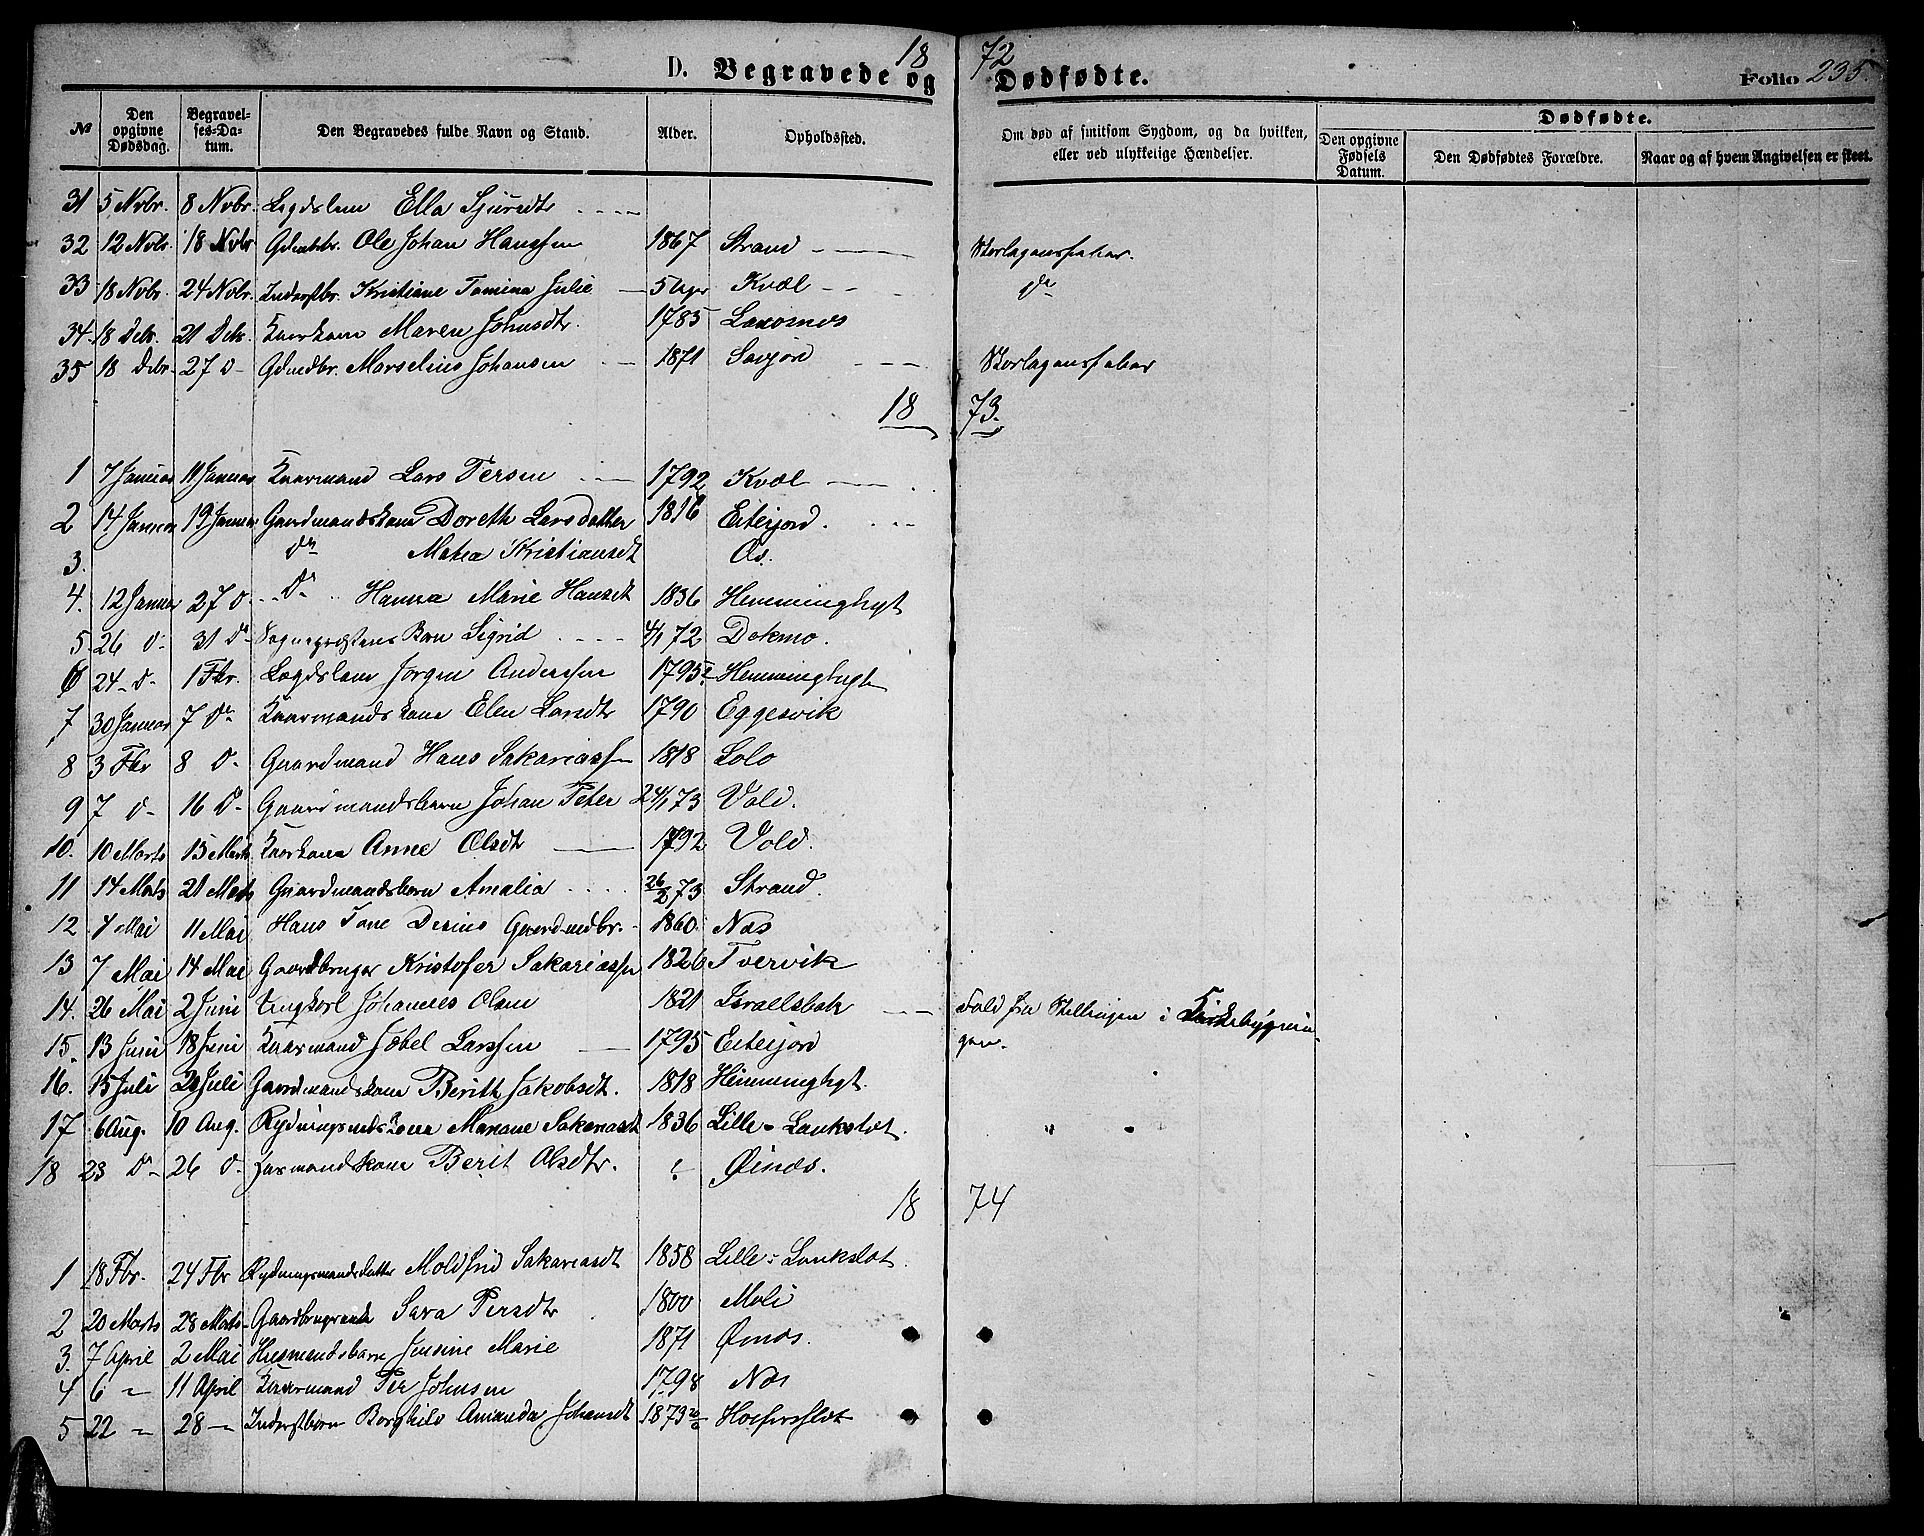 18 72
D. Begravede og Dødfødte. Folio 235.
№ Den opgivne Dødsdag. Begravelses-Datum. Den Begravedes fulde Navn og Stand. Alder. Opholdssted. Om død af smitsom Sygdom, og da hvilken, eller ved ulykkelige Hændelser. Dødfødte. Den opgivne Fødsels Datum. Den Dødfødtes Forældre. Naar og af hvem Angivelsen er skeet.
31 5 Nvbr. 8 Nvbr. Legdslem Ella Sjursdtr
32 12 Nvbr. 18 Nvbr Gdmdsbr. Ole Johan Hanssen 1867 Strand
33 18 Nvbr. 24 Nvbr. Inderstbr. Kristiane Tomina Julie 5 Uger Kvæl do
34. 18 Debr. 21 Debr. Kaarkone Maren Johnsdtr. 1785 Laxosnes
35 18 Debr 27 D Gdmdbr. Marselius Johansen 1871 Savjord
18 73.
1 7 Januar 11 Januar Kaarmand Lars Persen 1792 Kvæl
2 14 Januar 19 Januar Gaardmandskone Doreth Larsdatter 1816 Eiterjord.
3. do Matea Kristiansdt Os.
4. 12 Januar 27 D. Do Hanna Marie Hansdt 1836 Hemminghyt
5. 26 D. 31 Do Sogneprestens Barn Sigrid 4/1 72 Dokmo.
6 24 D. 1 Fbr. Lægdslem Jørgen Anderssen 1795 Hemminghyt
7 30 Januar 7 Do Kaarmandskone Elen Larsdtr 1790 Eggesvik
8 3 Fbr 8 D. Gaardmand Hans Sakariassen 1818 Solo
9 7 D. 16 D. Gaardmandsbarn Johan Peter 24/1 73 Vold.
10. 10 Marts 15 Marts Kaarkone Anne Olsdt 1792 Vold.
11 14 Marts 21 Marts Gaardmandsbarn Amalia 26/2 73 Strand.
12 7 Mai 11 Mai Hans Tone Desius Gaardmdbr. 1860 Næs
13 7 Mai 14 Mai Gaardbruger Kristofer Sakariassen 1826 Tvervik
14. 26 Mai 2 Juni Ungkarl Johannes Olsen 1821 Israelsbak Fald fra Stellingen i Kirkebygnin
15. 13 Juni 18 Juni Kaarmand Jøbel Larssen 1795 Eiterjord gen.
16. 15 Juli 20 Juli Gaardmandskone Berith Jakobsdt. 1818 Hemminghyt.
17 6 Aug. 10 Aug. Rydningsmdskone Mariane Sakariasdt 1836 Lille-Lankslet.
18 23 D 26 D. Husmandskone Berit Olsdtr. ? Øinæs.
18 74
1 18 Fbr. 24 Fbr Rydningsmandsdatter Moldfrid Sakariasdt 1858 Lille-Lankslet.
2 20 Marts 28 Marts Gaardbrugerenke Sara Persdtr 1800 Moli
3. 7 April 2 Mai Husmandsbarn Jensine Marie 1871 Øinæs.
4 6 " 11 April Kaarmand Per Johnsen 1798 Næs
5 22 " 28 " Inderstbarn Borghild Amanda Johansdt 1873